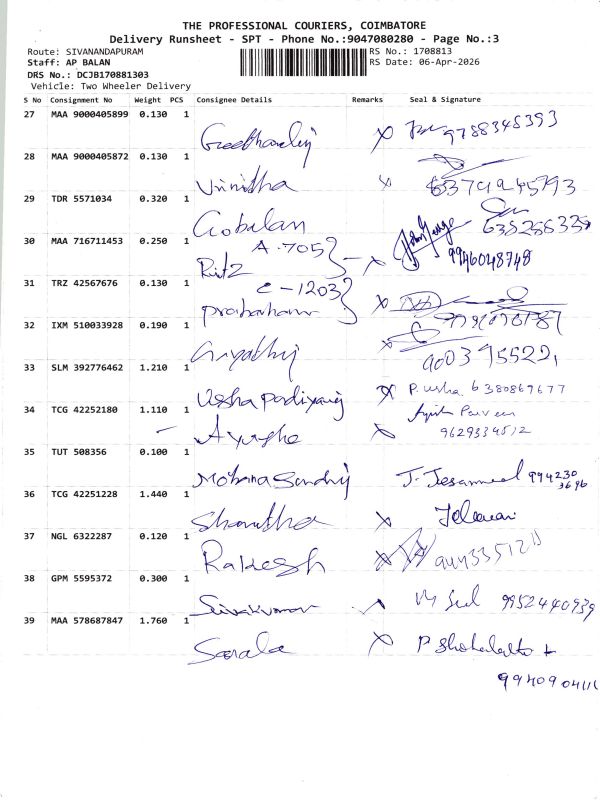 THE PROFESSIONAL COURIERS, COIMBATORE
Delivery Runsheet - SPT - Phone No.:9047080280 - Page No.:3
Route: SIVANANDAPURAM
RS No.: 1708813
Staff: AP BALAN
RS Date: 06-Apr-2026
DRS No.: DCJB170881303
Vehicle: Two Wheeler Delivery
S No Consignment No Weight PCS Consignee Details Remarks Seal & Signature
27 MAA 9000405899 0.130 1
9788345393
28 MAA 9000405872 0.130 1
Vinitha
29 TDR 5571034 0.320 1
Gobalan
30 MAA 716711453 0.250 1
A-705
Ritz
9946048748
31 TRZ 42567676 0.130 1
C-1203
32 IXM 510033928 0.190 1
33 SLM 392776462 1.210 1
Usha
P. Usha 6380867677
34 TCG 42252180 1.110 1
Ayisha
Parveen
9629334512
35 TUT 508356 0.100 1
Mohana
994230
3696
36 TCG 42251228 1.440 1
37 NGL 6322287 0.120 1
Rakesh
38 GPM 5595372 0.300 1
Sivakumar
9952440939
39 MAA 578687847 1.760 1
Sarala